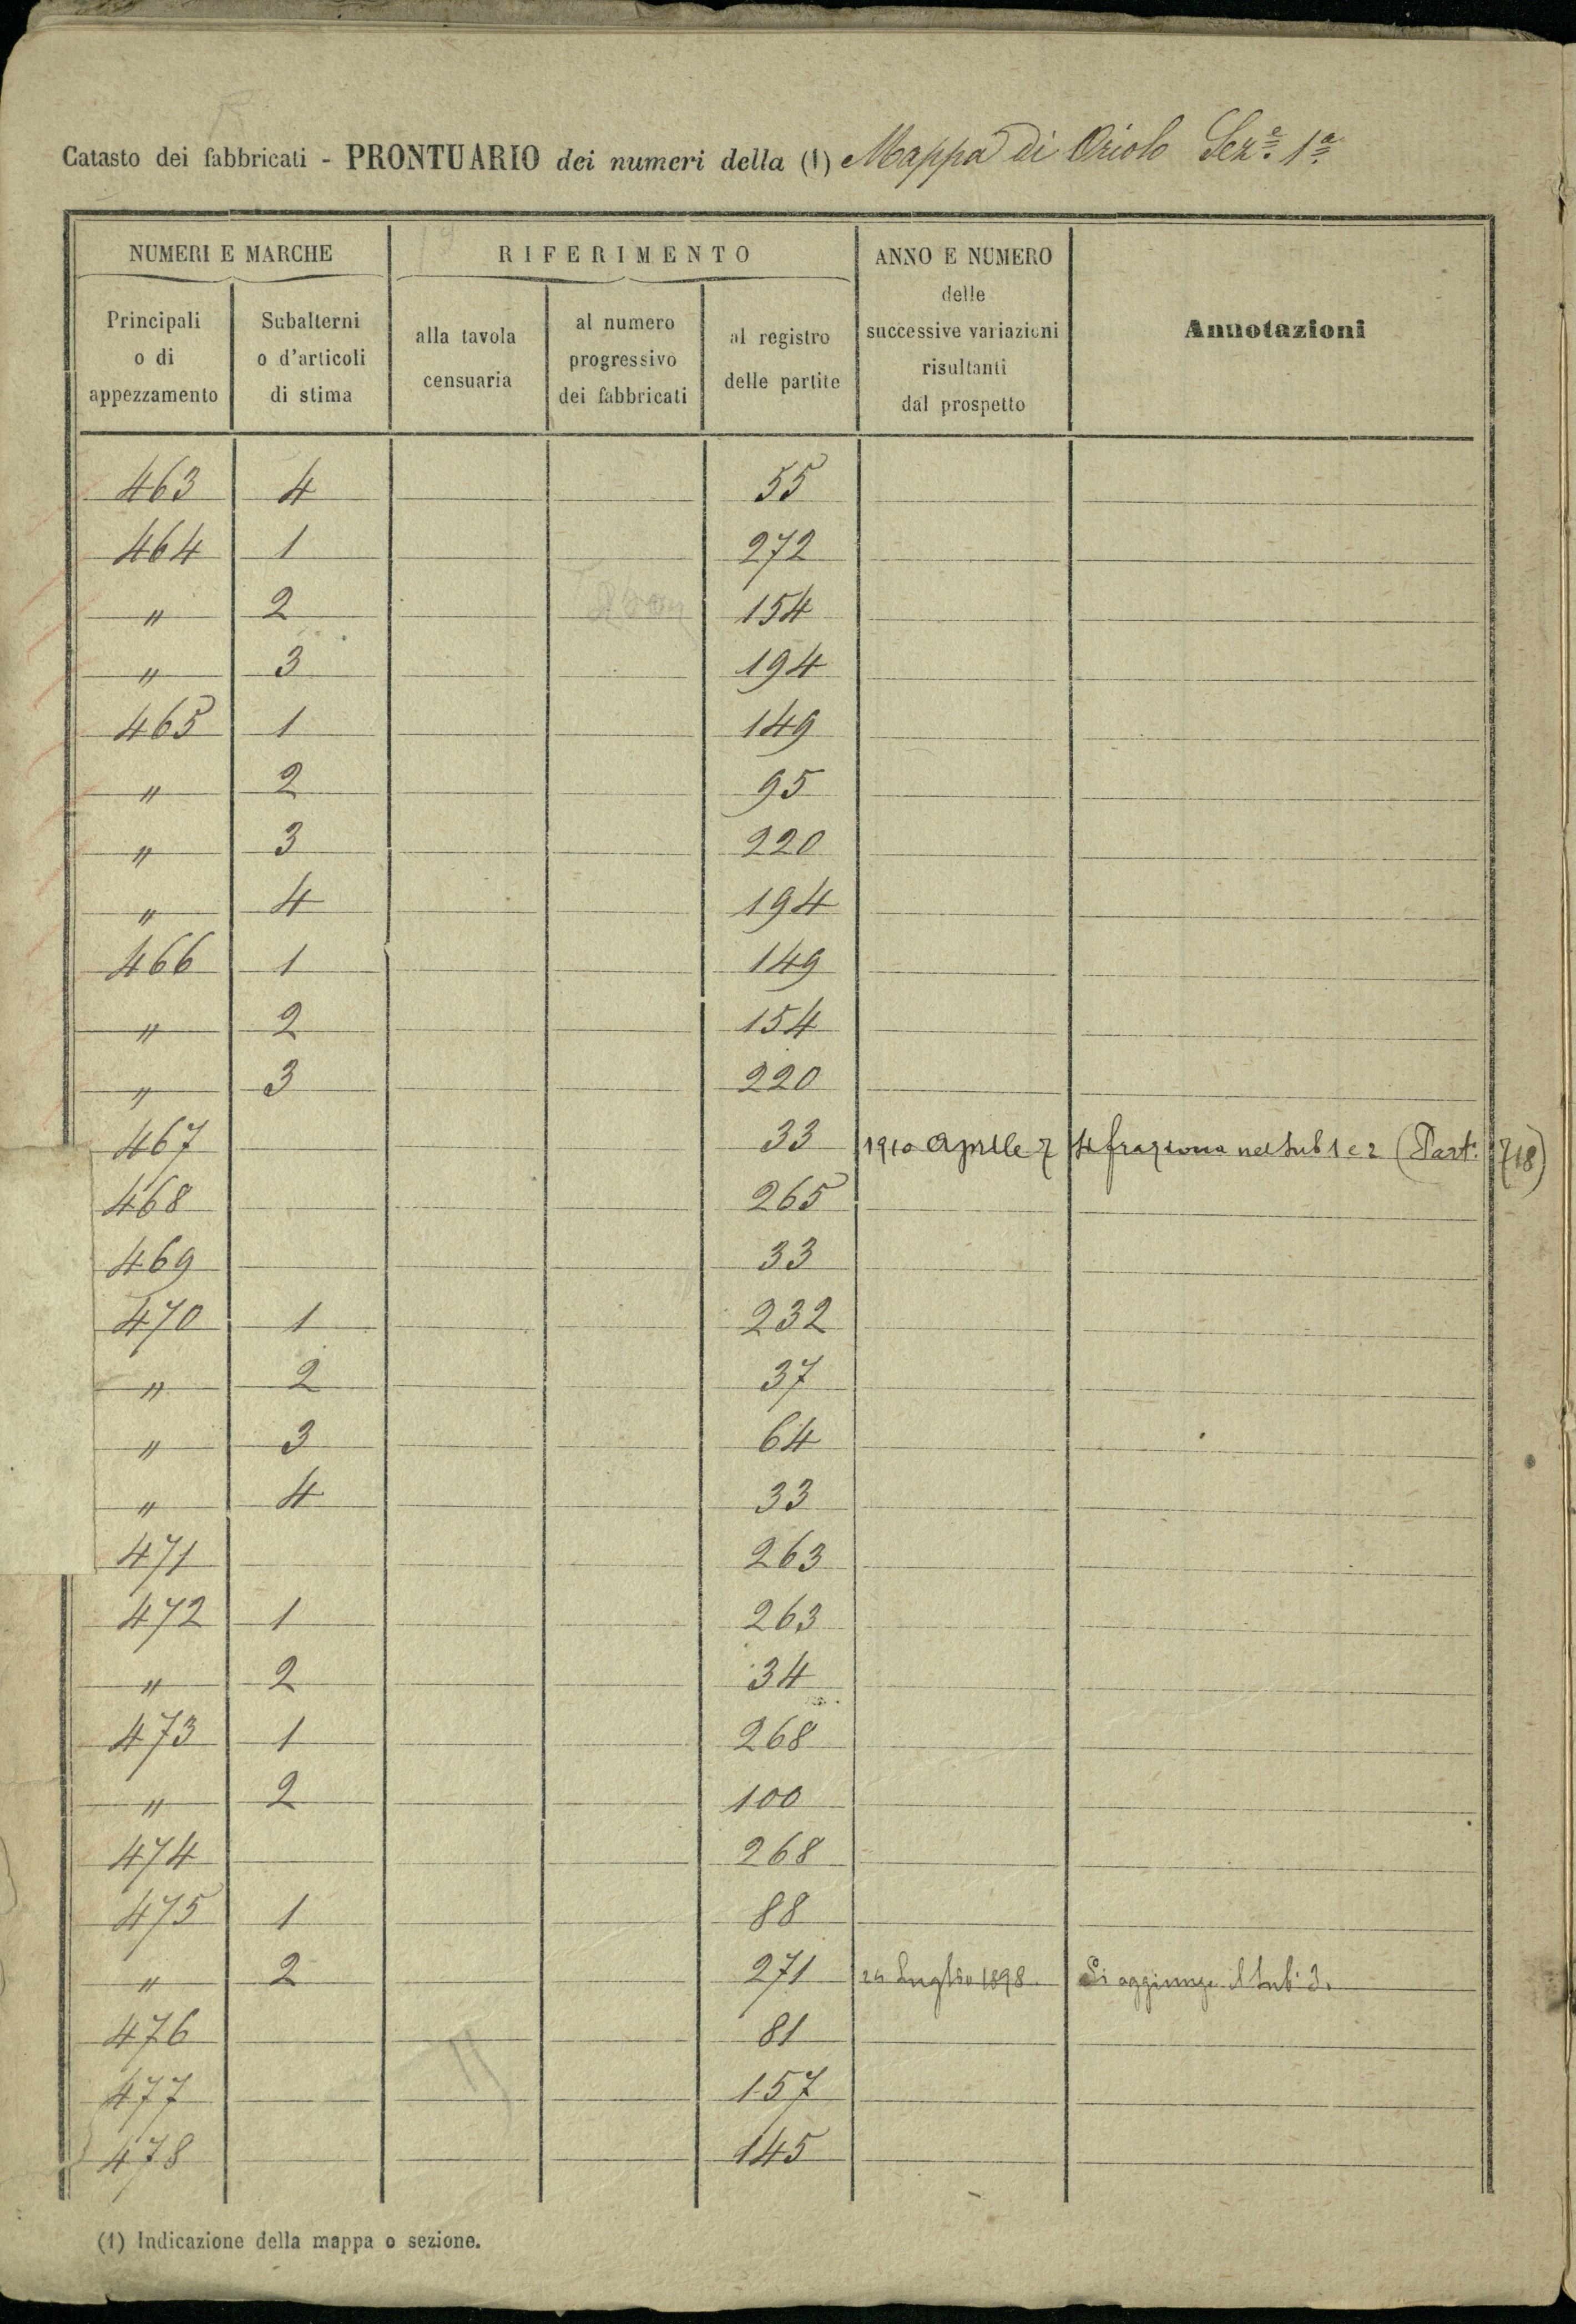 Catasto dei fabbricati - PRONTUARIO dei numeri della (1) Mappa di Oriolo Sez.e 1.a
NUMERI E MARCHE
RIFERIMENTO
ANNO E NUMERO
delle
successive variazioni
risultanti
dal prospetto
Annotazioni
Principali
o di
appezzamento
Subalterni
o d'articoli
di stima
alla tavola
censuaria
al numero
progressivo
dei fabbricati
al registro
delle partite
463 4 55
464 1 272
" 2 154
" 3 194
465 1 149
" 2 95
" 3 220
" 4 194
466 1 149
" 2 154
" 3 220
467 33 1910 Aprile 7 Si fraziona nel sub 1 e 2 (Part. 718)
468 265
469 33
470 1 232
" 2 37
" 3 64
" 4 33
471 263
472 1 263
" 2 34
473 1 268
" 2 100
474 268
475 1 88
" 2 271 24 Luglio 1898 Si aggiunge il sub. 3.
476 81
477 157
478 145
(1) Indicazione della mappa o sezione.